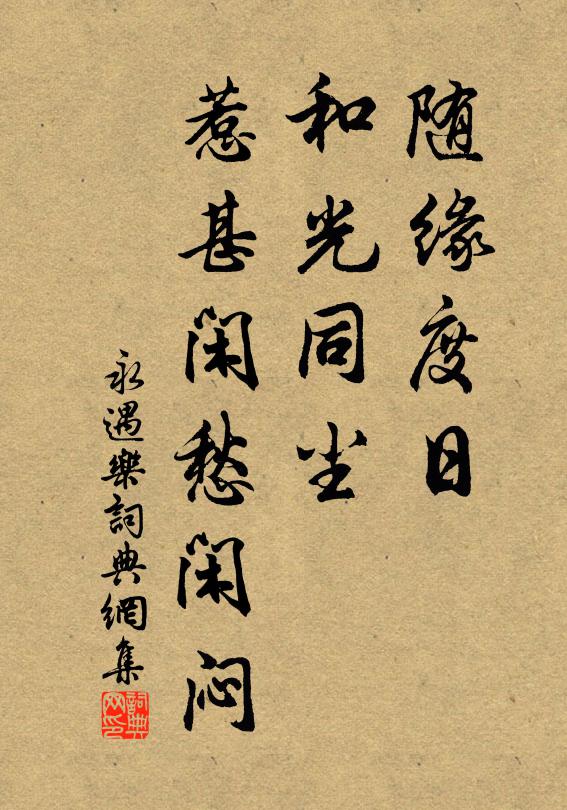 随缘度日
和光同尘
惹甚闲愁闲闷
永遇樂詞典網集
詞典
网印